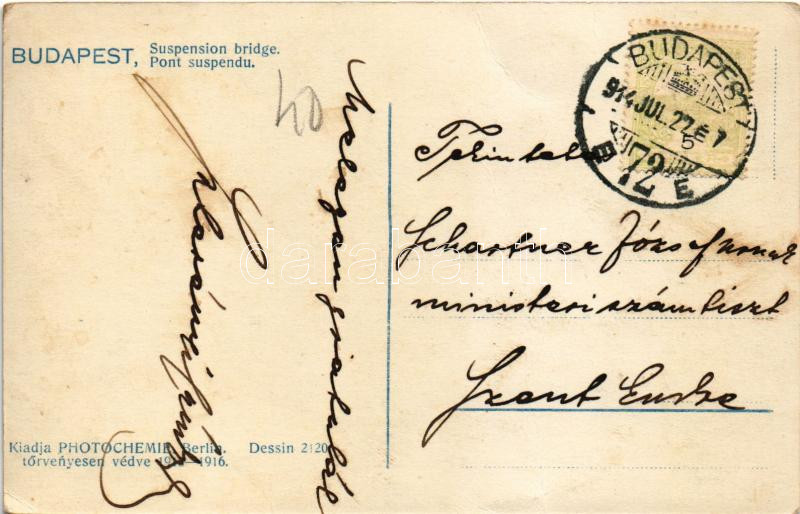 BUDAPEST, Suspension bridge.
Pont suspendu.
40
Melegen gratulál
BUDAPEST
914 JUL. 22. É 7
5
72
B E
Tekintetes
Schartner József urnak
ministeri számtiszt
Szent Endre
darabanth
Kiadja PHOTOCHEMIE, Berlin. Dessin 2120
törvényesen védve 1911—1916.